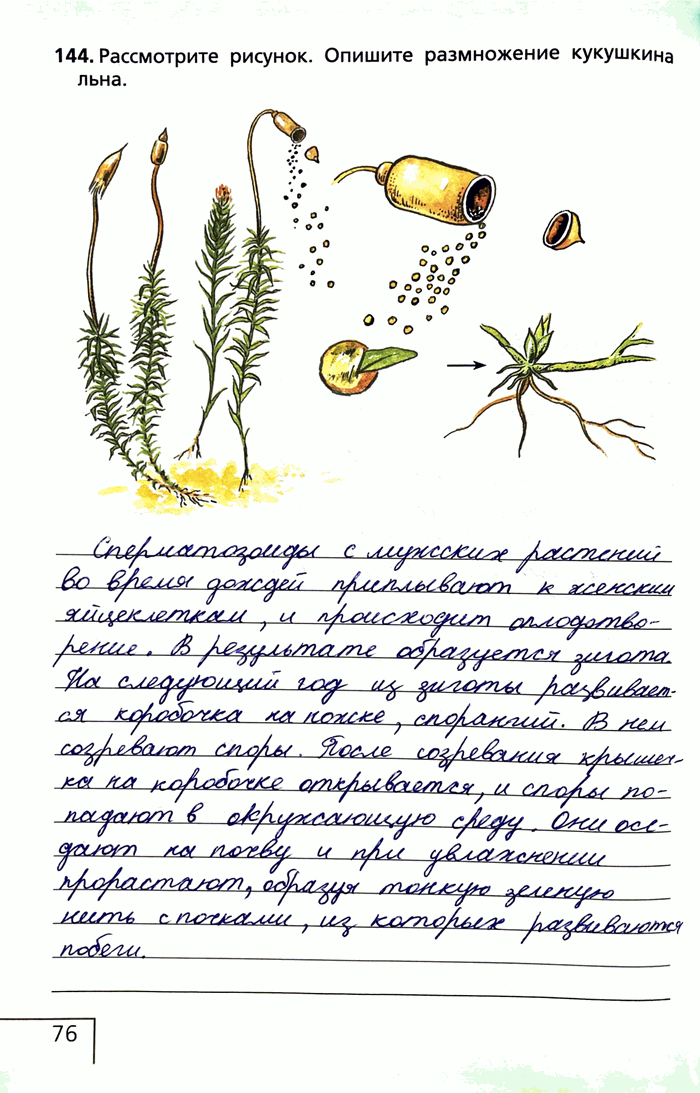 144. Рассмотрите рисунок. Опишите размножение кукушкина
льна.
Сперматозоиды с мужских растений
во время дождей приплывают к женским
яйцеклеткам, и происходит оплодотво-
рение. В результате образуется зигота.
На следующий год из зиготы развивает-
ся коробочка на ножке, спорангий. В нем
созревают споры. После созревания крышеч-
ка на коробочке открывается, и споры по-
падают в окружающую среду. Они осе-
дают на почву и при увлажнении
прорастают, образуя тонкую зеленую
нить с почками, из которых развиваются
побеги.
76